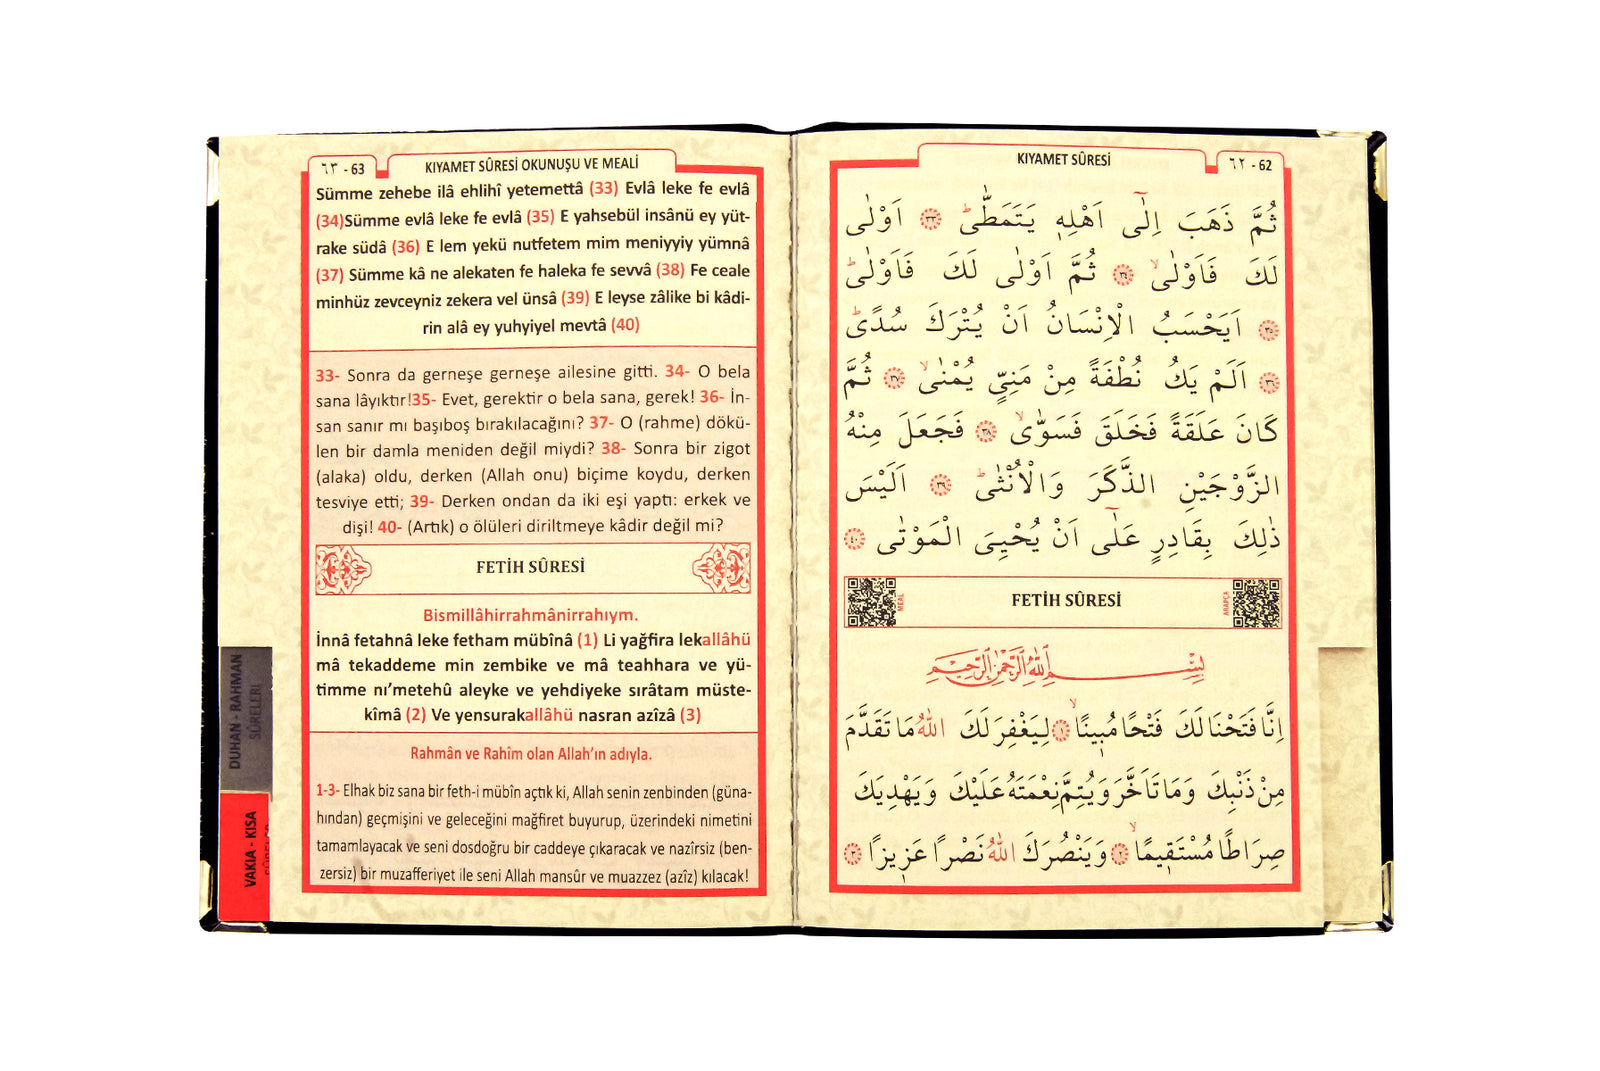 ٦٢ - 62
KIYAMET SÛRESİ
ثُمَّ ذَهَبَ اِلٰٓى اَهْلِه۪ يَتَمَطّٰىۜ ﴿٣٣﴾ اَوْلٰى
لَكَ فَاَوْلٰىۙ ﴿٣٤﴾ ثُمَّ اَوْلٰى لَكَ فَاَوْلٰىۜ
﴿٣٥﴾ اَيَحْسَبُ الْاِنْسَانُ اَنْ يُتْرَكَ سُدًىۜ
﴿٣٦﴾ اَلَمْ يَكُ نُطْفَةً مِنْ مَنِيٍّ يُمْنٰىۙ ﴿٣٧﴾ ثُمَّ
كَانَ عَلَقَةً فَخَلَقَ فَسَوّٰىۙ ﴿٣٨﴾ فَجَعَلَ مِنْهُ
الزَّوْجَيْنِ الذَّكَرَ وَالْاُنْثٰىۜ ﴿٣٩﴾ اَلَيْسَ
ذٰلِكَ بِقَادِرٍ عَلٰٓى اَنْ يُحْيِيَ الْمَوْتٰى ﴿٤٠﴾
MEAL
FETİH SÛRESİ
ARAPÇA
بِسْمِ اللّٰهِ الرَّحْمٰنِ الرَّح۪يمِ
اِنَّا فَتَحْنَا لَكَ فَتْحًا مُب۪ينًاۙ ﴿١﴾ لِيَغْفِرَ لَكَ اللّٰهُ مَا تَقَدَّمَ
مِنْ ذَنْبِكَ وَمَا تَاَخَّرَ وَيُتِمَّ نِعْمَتَهُ عَلَيْكَ وَيَهْدِيَكَ
صِرَاطًا مُسْتَق۪يمًاۙ ﴿٢﴾ وَيَنْصُرَكَ اللّٰهُ نَصْرًا عَز۪يزًا ﴿٣﴾
٦٣ - 63
KIYAMET SÛRESİ OKUNUŞU VE MEALİ
Sümme zehebe ilâ ehlihî yetemettâ (33) Evlâ leke fe evlâ
(34)Sümme evlâ leke fe evlâ (35) E yahsebül insânü ey yüt-
rake südâ (36) E lem yekü nutfetem mim meniyyiy yümnâ
(37) Sümme kâ ne alekaten fe haleka fe sevvâ (38) Fe ceale
minhüz zevceyniz zekera vel ünsâ (39) E leyse zâlike bi kâdi-
rin alâ ey yuhyiyel mevtâ (40)
33- Sonra da gerneşe gerneşe ailesine gitti. 34- O bela
sana lâyıktır!35- Evet, gerektir o bela sana, gerek! 36- İn-
san sanır mı başıboş bırakılacağını? 37- O (rahme) dökü-
len bir damla meniden değil miydi? 38- Sonra bir zigot
(alaka) oldu, derken (Allah onu) biçime koydu, derken
tesviye etti; 39- Derken ondan da iki eşi yaptı: erkek ve
dişi! 40- (Artık) o ölüleri diriltmeye kâdir değil mi?
FETİH SÛRESİ
Bismillâhirrahmânirrahıym.
İnnâ fetahnâ leke fetham mübînâ (1) Li yağfira lekallâhü
mâ tekaddeme min zembike ve mâ teahhara ve yü-
timme nı'metehû aleyke ve yehdiyeke sırâtam müste-
kîmâ (2) Ve yensurakallâhü nasran azîzâ (3)
Rahmân ve Rahîm olan Allah'ın adıyla.
1-3- Elhak biz sana bir feth-i mübîn açtık ki, Allah senin zenbinden (güna-
hından) geçmişini ve geleceğini mağfiret buyurup, üzerindeki nimetini
tamamlayacak ve seni dosdoğru bir caddeye çıkaracak ve nazîrsiz (ben-
zersiz) bir muzafferiyet ile seni Allah mansûr ve muazzez (azîz) kılacak!
DUHAN - RAHMAN
SÛRELERİ
VAKIA - KISA